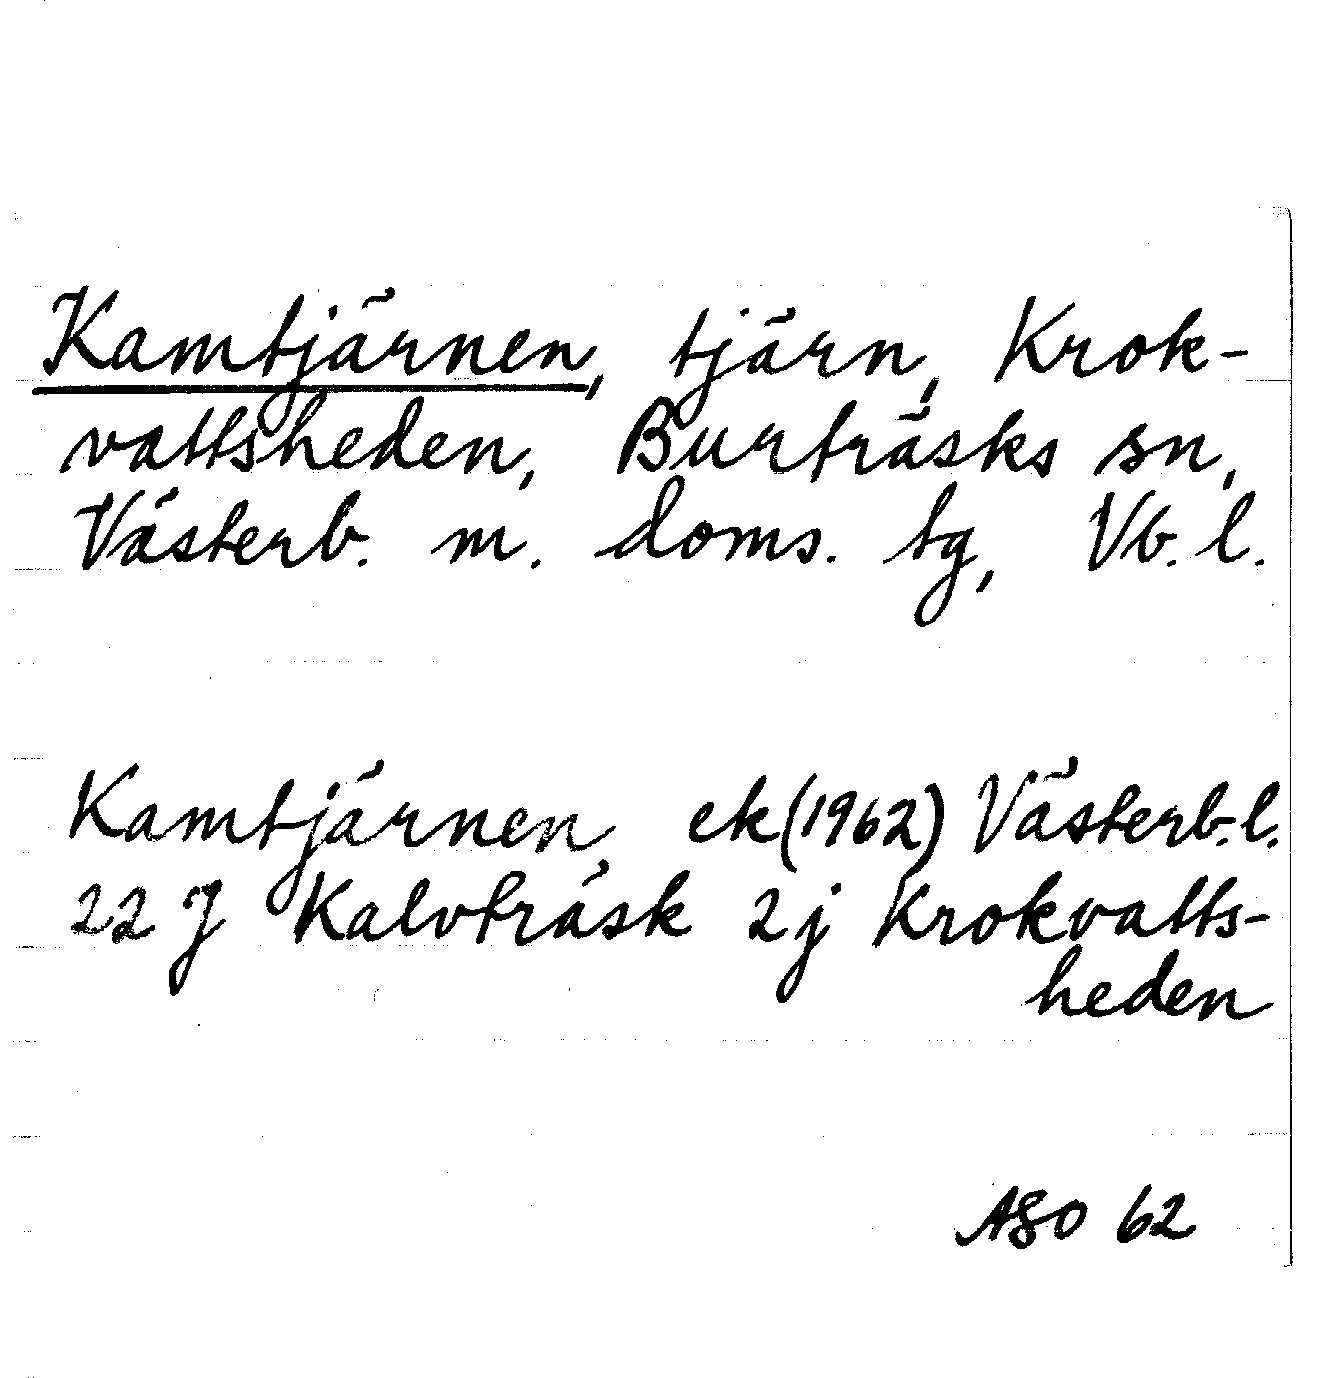 Kamtjärnen, tjärn, Krok-
vattsheden, Burträsks sn,
Västerb. m. doms. tg, Vb. l.
Kamtjärnen, ek (1962) Västerb. l.
22 J Kalvträsk 2j Krokvatts-
heden
ASO 62